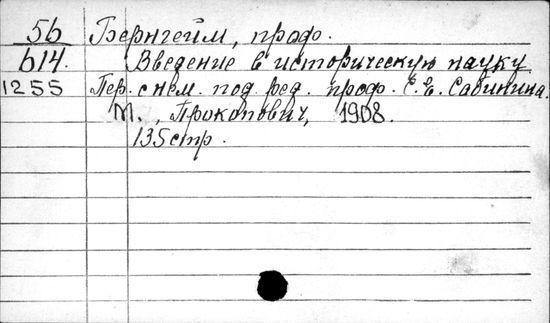 56 Бернгейм, проф.
614. Введение в историческую науку
1255 Пер. с нем. под ред. проф. С. Е. Сабинина.
М., Прокопович, 1908.
135 стр.